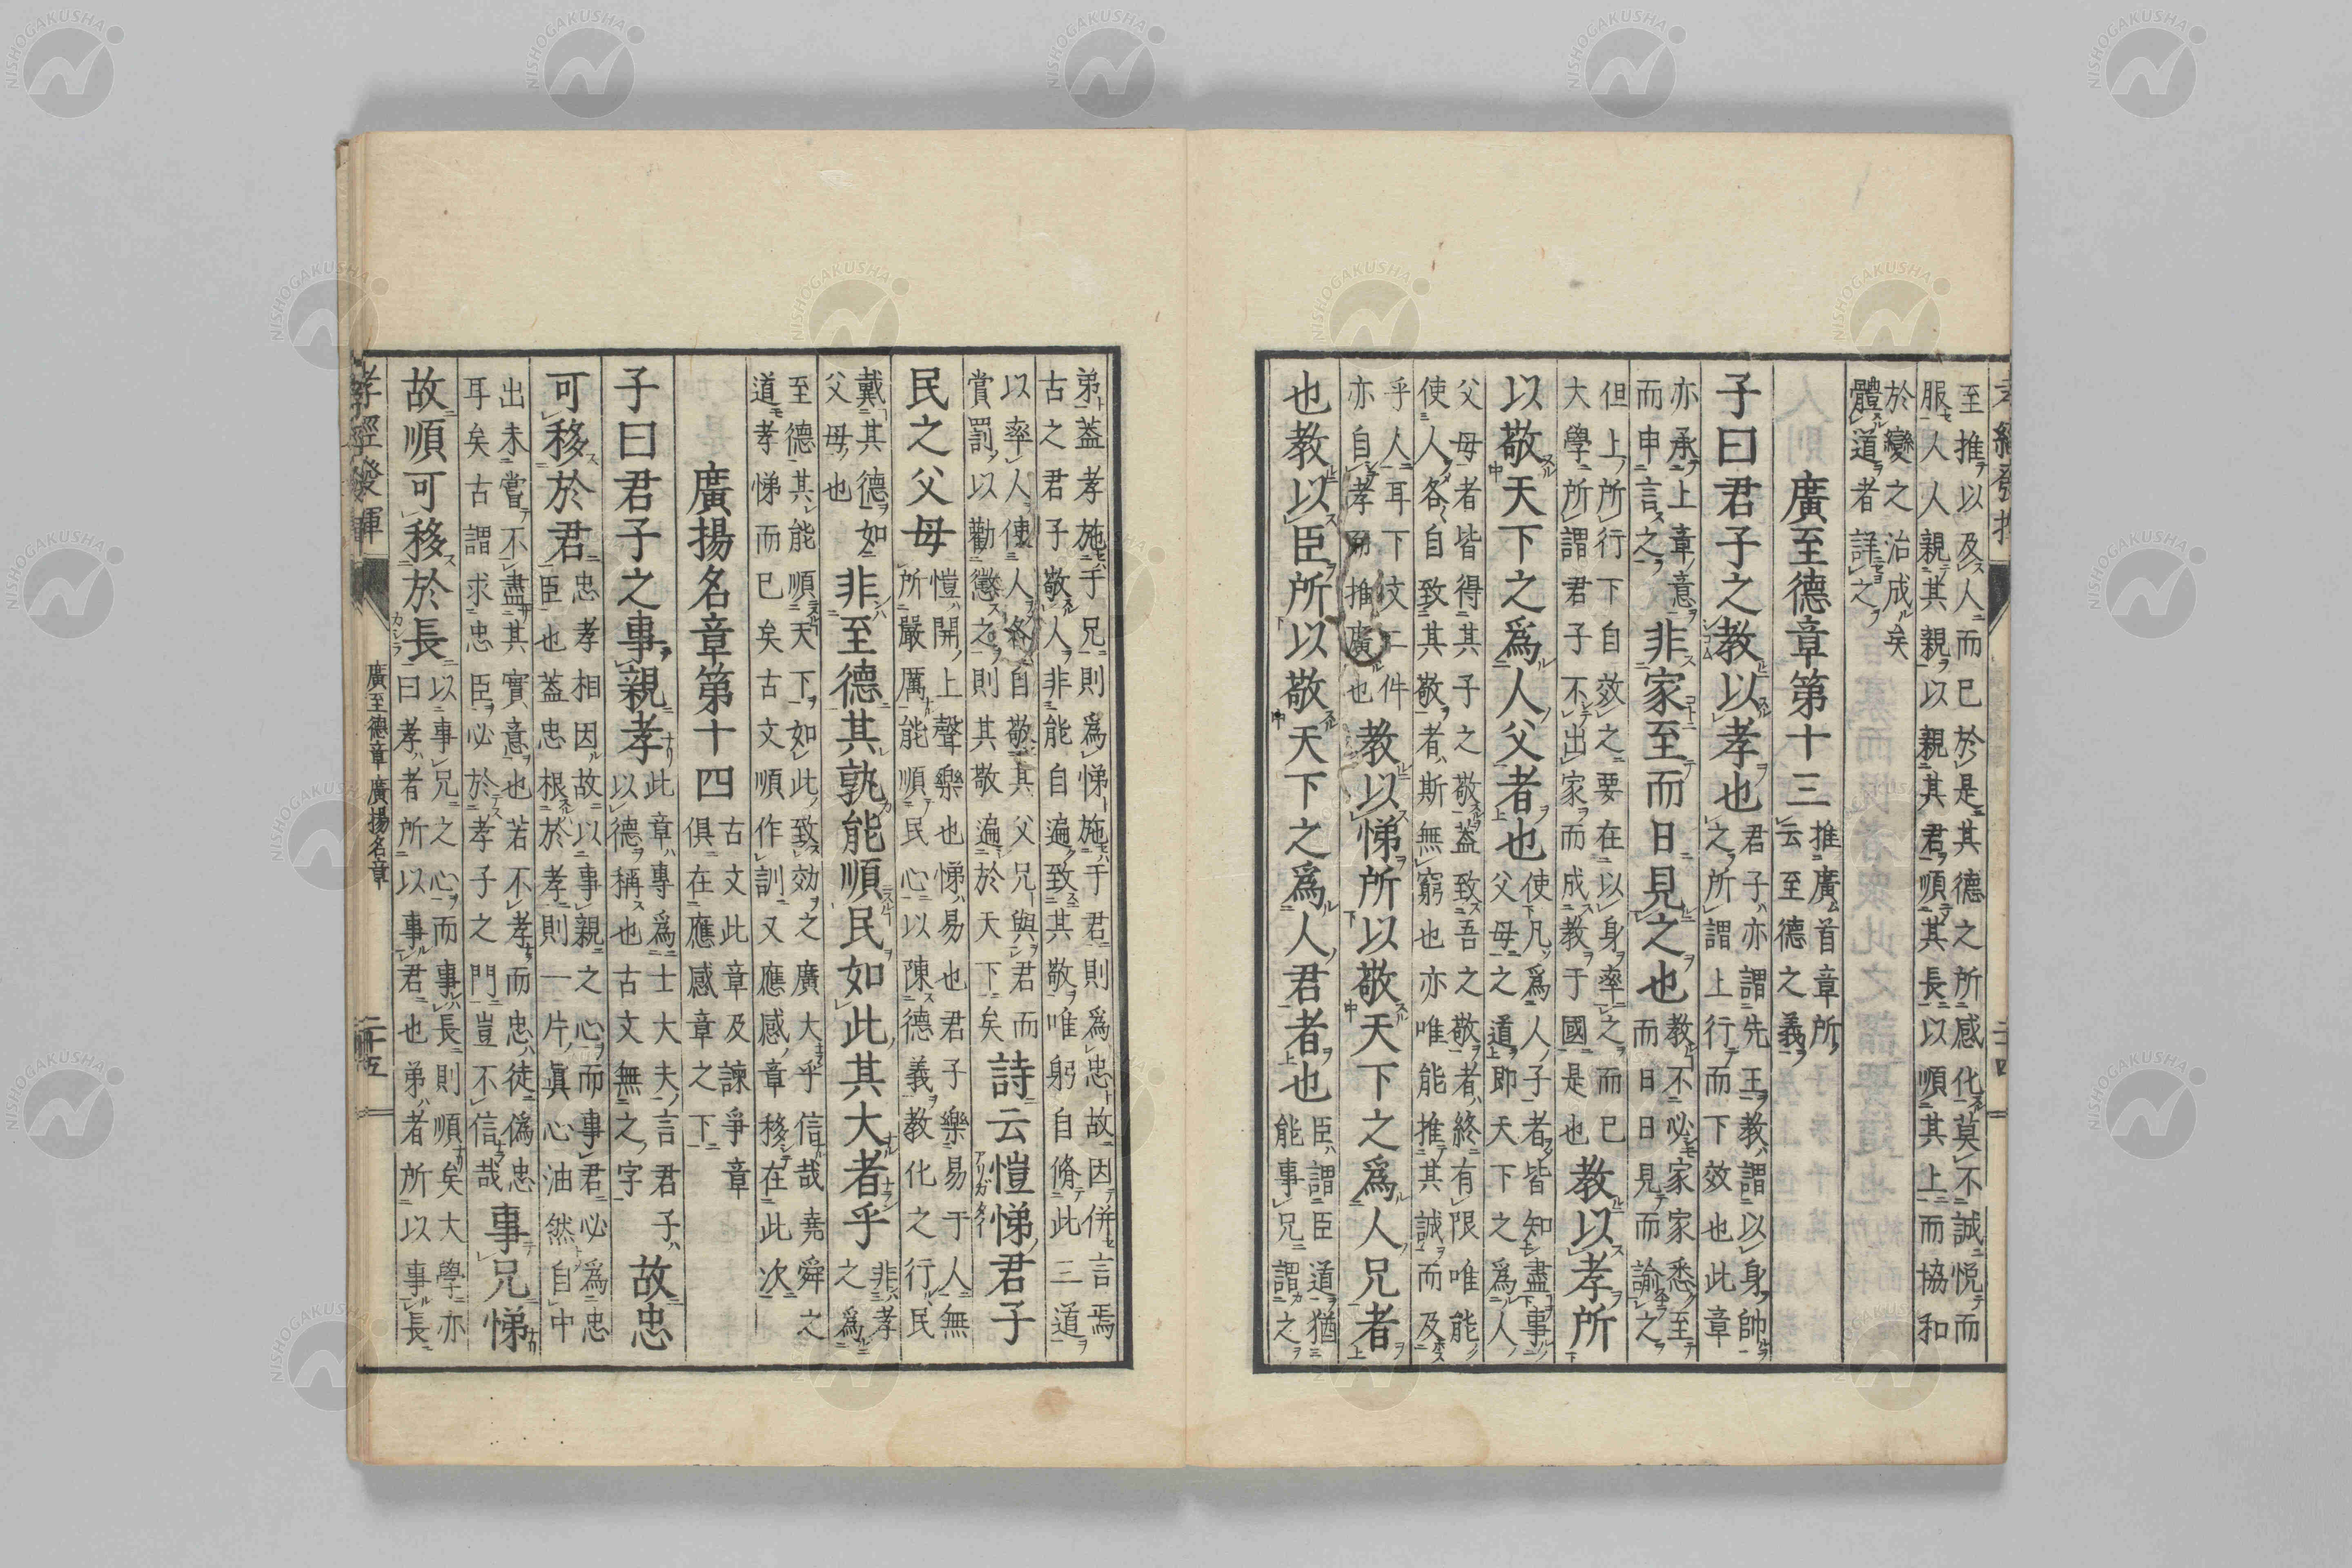 至推以及人而已於是其德之所感化莫不誠悅而
服人人親其親以親其君順其長以順其上而協和
於變之治成矣
體道者詳之
廣至德章第十三
推廣首章所
云至德之義
子曰君子之教以孝也
君子亦謂先王教謂以身帥
之所謂上行而下效也此章
亦承上章意
而申言之
非家至而日見之也
教不必家家悉至
而日日見而諭之
但上所行下自效之要在以身率之而已
大學所謂君子不出家而成教于國是也
教以孝所
以敬天下之爲人父者也
使凡爲人子者皆知盡事
父母之道即天下之爲人
父母者皆得其子之敬蓋致吾之敬者終有限唯能
使人各自致其敬者斯無窮也亦唯能推其誠而及
乎人耳下文二件
亦自孝而推廣也
教以悌所以敬天下之爲人兄者
也教以臣所以敬天下之爲人君者也
臣謂臣道猶
能事兄謂之
弟蓋孝施于兄則爲悌施于君則爲忠故因併言焉
古之君子敬人非能自遍致其敬唯躬自脩此三道
以率人使人各自敬其父兄與君而
賞罰以勸懲之則其敬遍於天下矣
詩云愷悌君子
民之父母
愷開上聲樂也悌易也君子樂易于人無
所嚴厲能順民心以陳德義教化之行民
戴其德如
父母也
非至德其孰能順民如此其大者乎
非孝
之爲
至德其能順天下如此致効之廣大乎信哉堯舜之
道孝悌而已矣古文順作訓又應感章移在此次
廣揚名章第十四
古文此章及諫爭章
俱在應感章之下
子曰君子之事親孝
此章專爲士大夫言君子
以德稱也古文無之字
故忠
可移於君
忠孝相因故以事親之心而事君必爲忠
臣也蓋忠根於孝則一片眞心油然自中
出未嘗不盡其實意也若不孝而忠徒僞忠
耳矣古謂求忠臣必於孝子之門豈不信哉
事兄悌
故順可移於長
以事兄之心而事長則順矣大學亦
曰孝者所以事君也弟者所以事長
孝經發揮
廣至德章 廣揚名章
二十五
NISHOGAKUSHA